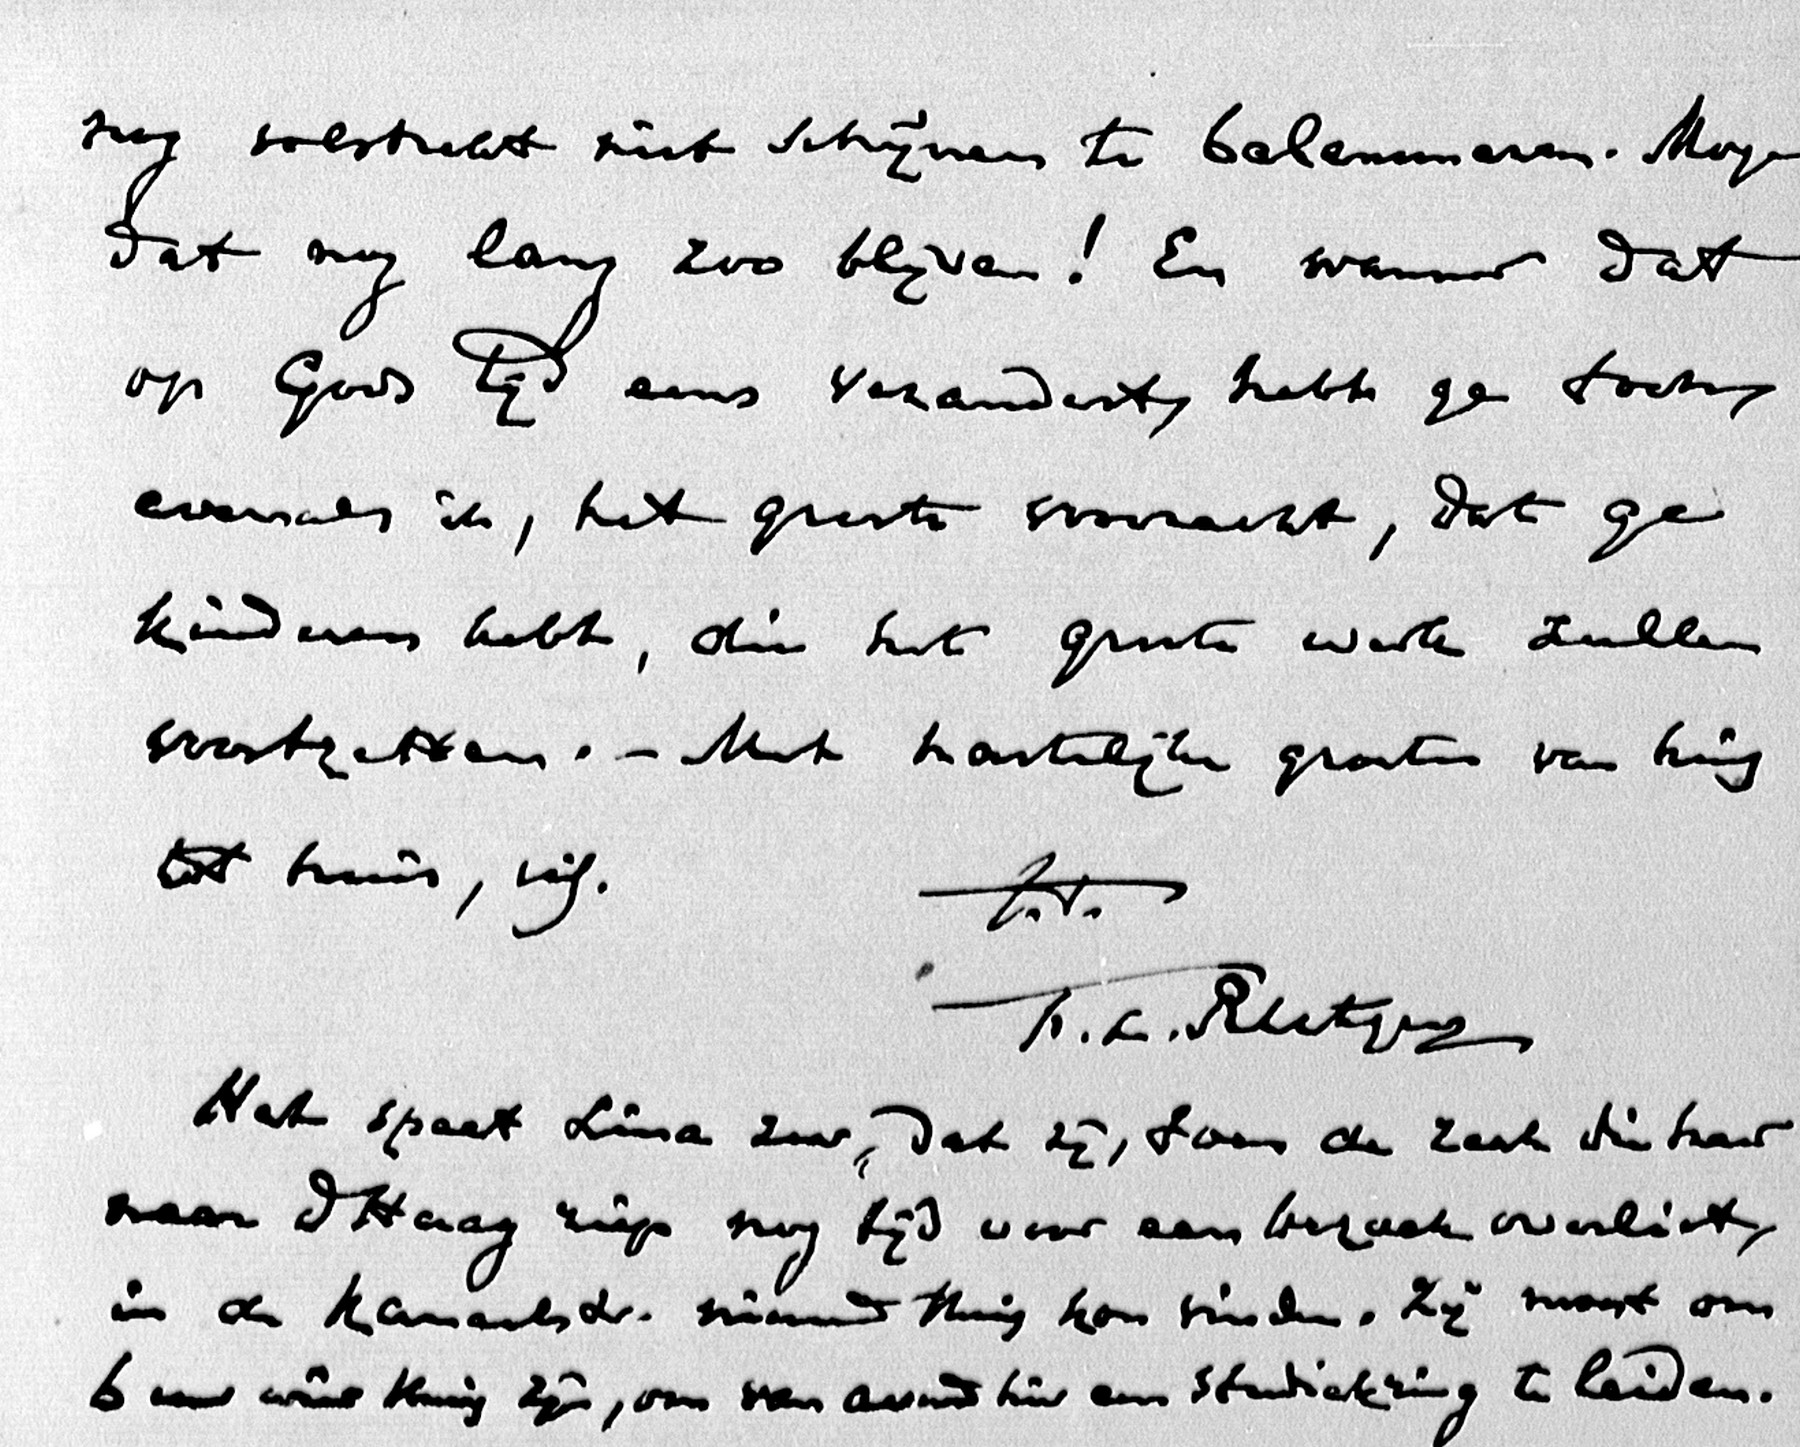 nog volstrekt niet schijnen te belemmeren. Moge
dat nog lang zoo blijven! En wanneer dat
op Gods tijd eens verandert, hebt ge toch,
evenals ik, het groote voorrecht, dat ge
kinderen hebt, die het groote werk zullen
voortzetten. – Met hartelijke groeten van huis
tot huis, vif.
t.t.
Het speet Lina zeer, dat zij, toen de zaak die haar
naar d Haag riep nog tijd voor een bezoek overliet,
in de Kanaalstr. niemand thuis kon vinden. Zij moest om
6 uur weer thuis zijn, om van avond hier een studiekring te leiden.